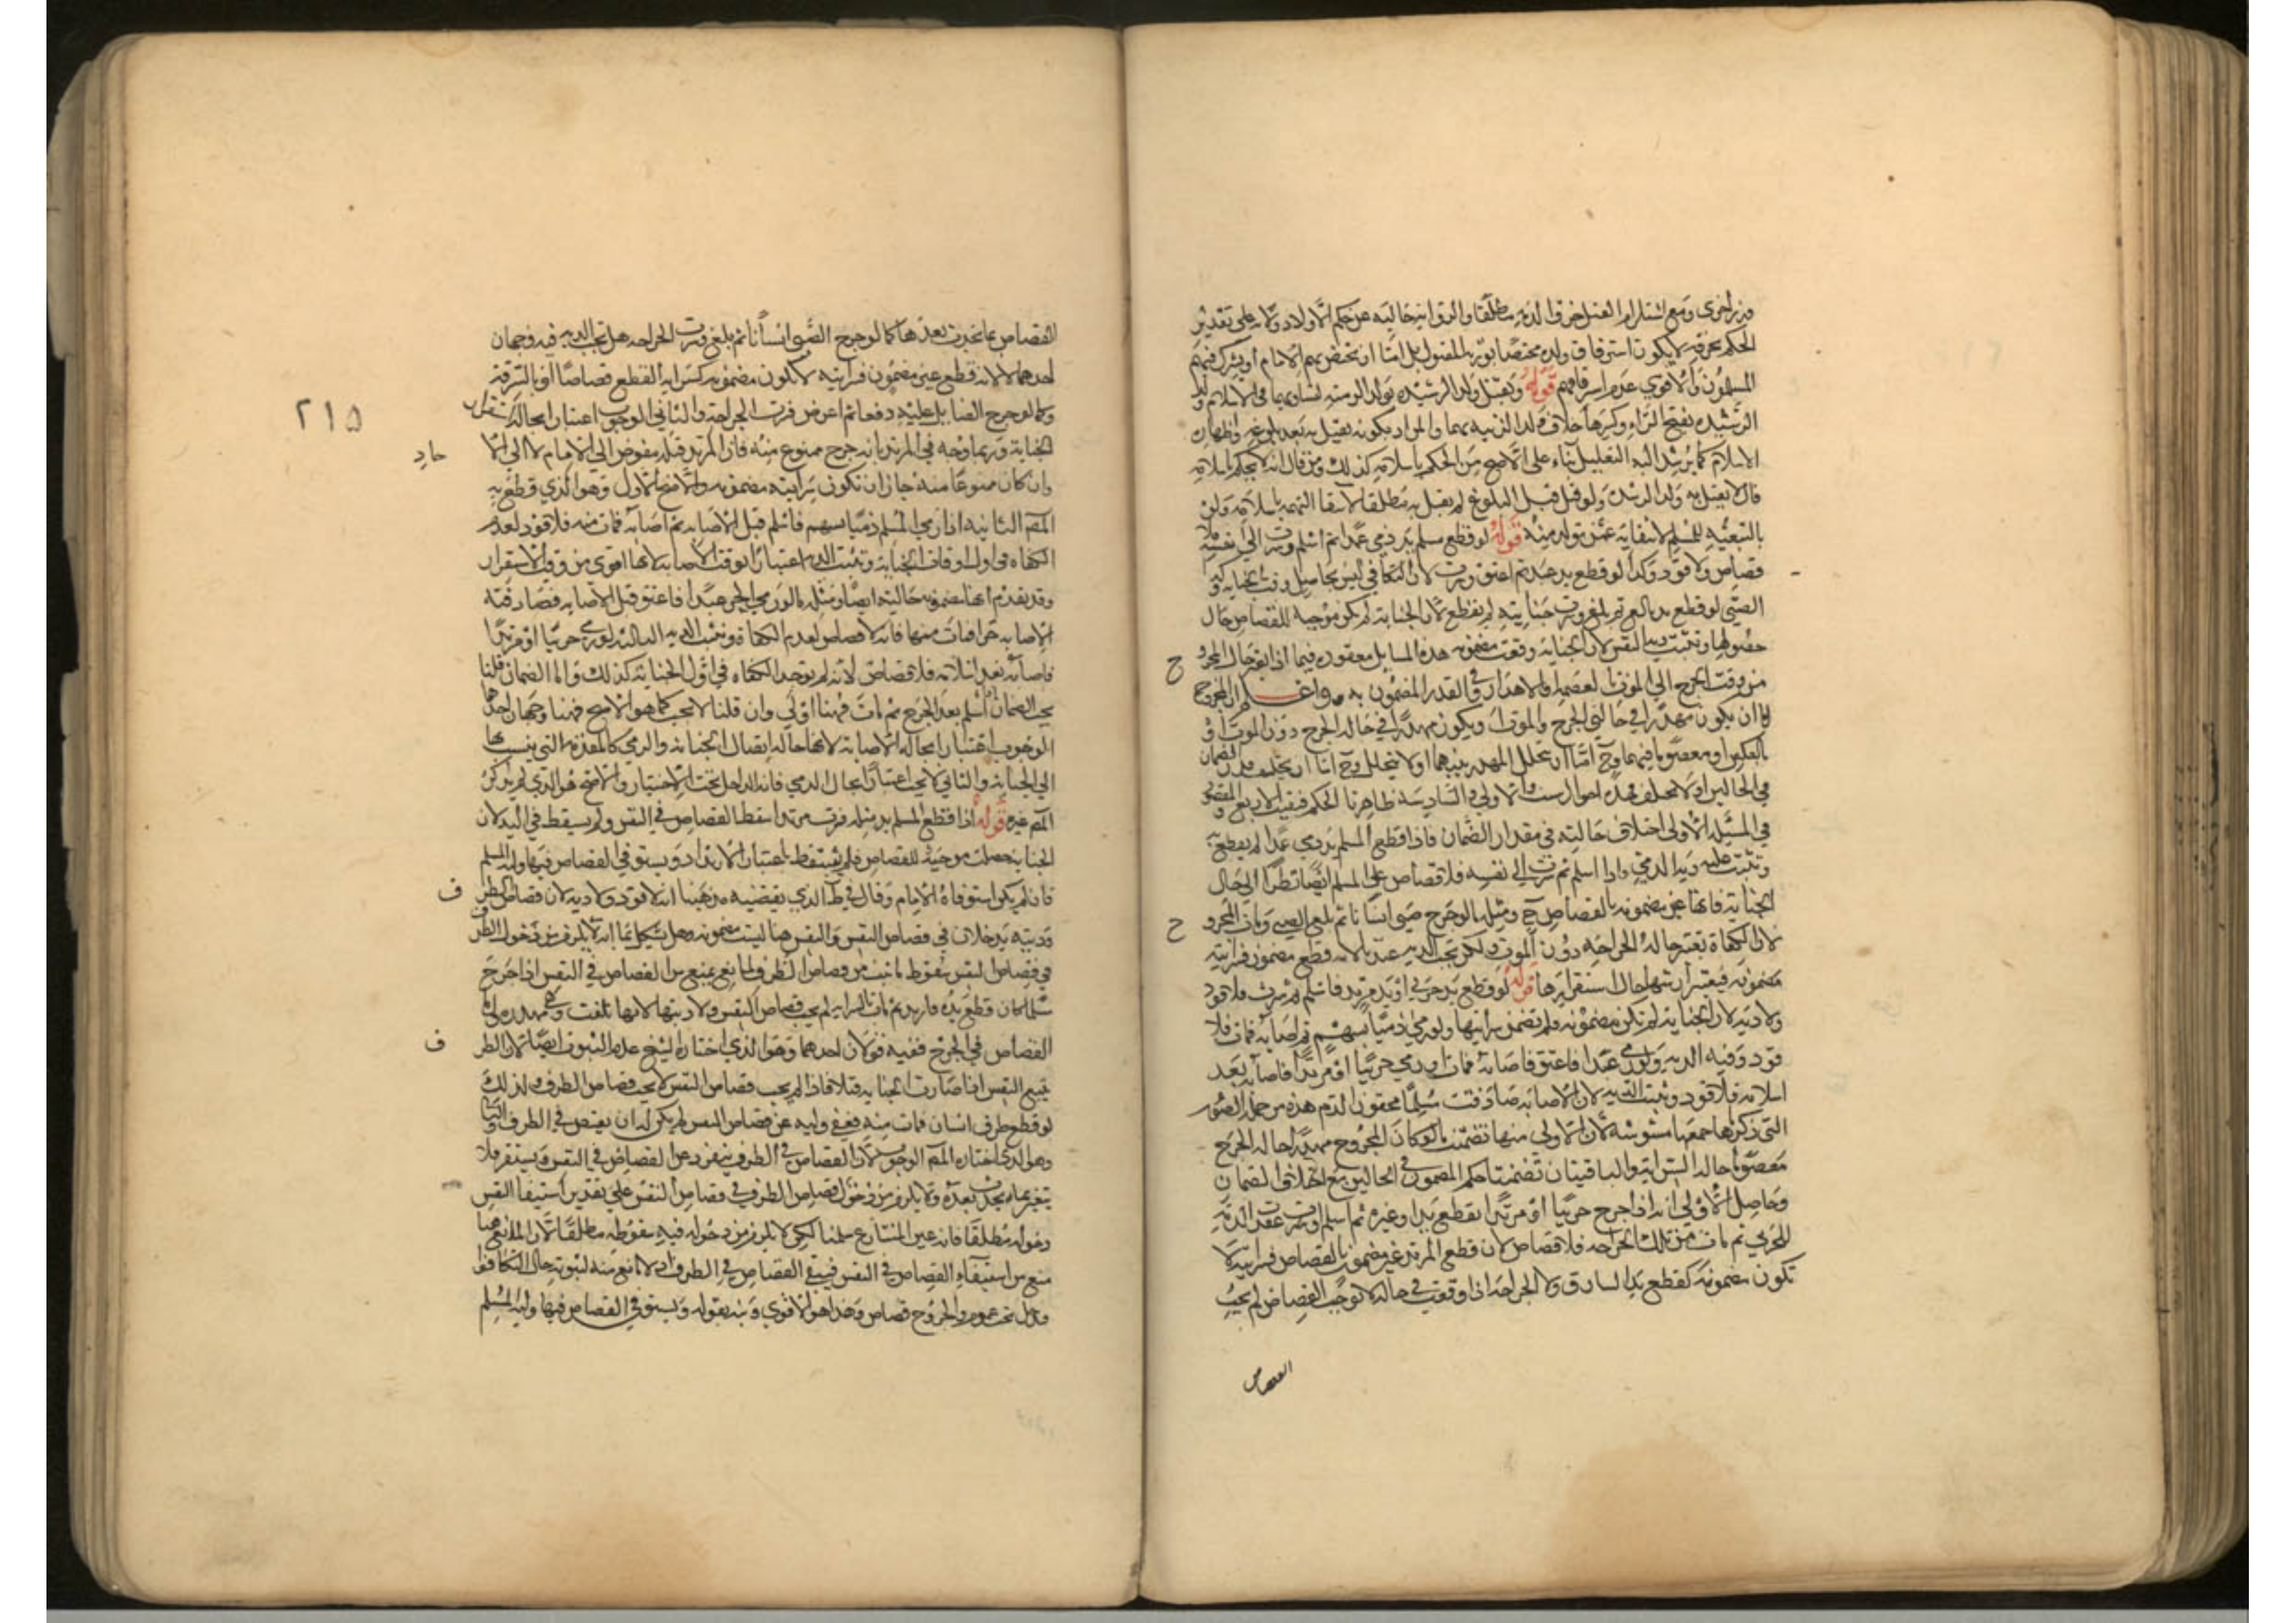 من أخرى ومع استلزام القتل اخراق الذمة مطلقا والروايه خاليه عن حكم الاولاد وعلى تقدير
الحكم بحرقه لا يكون استرقاق ولده مختصا بورثه المقتول بل اما ان يختص بهم الامام او يشترك فيهم
المسلمون والاقوى عدم استرقاقهم قوله ويقتل ولد الرشيده بولد الزنيه لتساويهما في الاسلام ولد
الرشيده بفتح الراء وكسرها خلاف ولد الزنيه بهما والمراد بكونه يقتل به بعد بلوغه واظهاره
الاسلام كما يرشد اليه التعليل بناء على الاصح من الحكم باسلامه كذلك ومن قال انه لا يحكم باسلامه
قال لا يقتل به ولد الرشده ولو قتل قبل البلوغ لم يقتل به مطلقا لانتفاء التبعيه باسلامه
بالتبعيه للمسلم لانتفائه عمن تولد منه قوله لو قطع مسلم يد ذمي عمدا ثم اسلم وسرت الى نفسه فلا
قصاص ولا قود وكذا لو قطع يد عبد ثم اعتق وسرت لان التكافي ليس بحاصل وقت الجنايه وكذا
الصبي لو قطع يد بالغ ثم بلغ وسرت جنايته لم يقطع لان الجنايه لم تكن موجبه للقصاص حال
حصولها وتثبت ديه النفس لان الجنايه وقعت مضمونه هذه المسايل معقوده فيما اذا تغير حال المجروح
من وقت الجرح الى الموت بالعصمه او الاهدار او في القدر المضمون به واعلم ان المجروح
اما ان يكون مهدرا في حالتي الجرح والموت او يكون مهدرا في حاله الجرح دون الموت او
بالعكس او معصوما فيهما وح اما ان يتخلل المهدر بينهما او لا يتخلل وح اما ان يختلف قدر الضمان
في الحالين او لا يختلف فهذه احوال ست والاولى والسادسه ظاهرتا الحكم فبقيت الاربع والمقصود
في المسئله الاولى اختلاف حالتيه في مقدار الضمان فاذا قطع المسلم يد ذمي عمدا لم يقطع به
وتثبت عليه ديه الذمي واذا اسلم ثم سرت الى نفسه فلا قصاص على المسلم ايضا نظرا الى حال
الجنايه فانها غير مضمونه بالقصاص ح ومثله ما لو جرح صبي انسانا ثم بلغ الصبي ومات المجروح
لان الكفاءة تعتبر حاله الجراحه دون الموت ولكن تجب الديه عندنا لانه قطع مضمون فسرايته
مضمونه فيعتبر ارشها حال استقرارها قوله لو قطع يد حربي او يد مرتد فاسلم ثم سرت فلا قود
ولا ديه لان الجنايه لم تكن مضمونه فلم تضمن سرايتها ولو رمى ذميا بسهم ثم اصابه فمات فلا
قود وفيه الديه ولو رمى عبدا فاعتق فاصابه فمات او رمى حربيا او مرتدا فاصابه بعد
اسلامه فلا قود وتثبت الديه لان الاصابه صادفت مسلما محقون الدم هذه من جمله الصور
التي ذكرناها جمعها مشوشه لان الاولى منها تضمنت ما لو كان المجروح مهدرا حاله الجرح
معصوما حاله السرايه والباقيتان تضمنتا حكم المضمون في الحالين مع اختلاف الضمان
وحاصل الاولى انه اذا جرح حربيا او مرتدا بقطع يد او غيره ثم اسلم وسرت او عقد الذمه
للحربي ثم مات من تلك الجراحه فلا قصاص لان قطع المرتد غير مضمون بالقصاص فسرايته لا
تكون مضمونه كقطع يد السارق ولان الجراحه اذا وقعت في حاله لا توجب القصاص لم يجب
القصاص
القصاص بما يحدث بعدها كما لو جرح الصبي انسانا ثم بلغ وسرت الجراحه هل تجب الديه فيه وجهان
احدهما لا لانه قطع غير مضمون فسرايته لا تكون مضمونه كسرايه القطع قصاصا او بالسرقه
وكما لو جرح الصايل عليه دفعا ثم اعرض فسرت الجراحه والثاني الوجوب اعتبارا بحاله استقرار
الجنايه وربما وجه في المرتد بانه جرح ممنوع منه فان المرتد قتله مفوض الى الامام لا الى الاحاد
وان كان ممنوعا منه جاز ان تكون سرايته مضمونه والاصح الاول وهو الذي قطع به
المص الثانيه اذا رمى المسلم ذميا بسهم فاسلم قبل الاصابه ثم اصابه فمات منه فلا قود لعدم
الكفاه في اول اوقات الجنايه وتثبت الديه اعتبارا بوقت الاصابه لانها اقوى من وقت الاستقرار
وقد تقدم انها مضمونه حالتيه ايضا ومثله ما لو رمى الحر عبدا فاعتق قبل الاصابه فصادفته
الاصابه حرا فمات منها فانه لا قصاص لعدم الكفاة وتثبت الديه الثالثه لو رمى حربيا او مرتدا
فاصابه بعد اسلامه فلا قصاص لانه لم يوجد الكفاه في اول الجنايه كذلك واما الضمان فان قلنا
يجب الضمان اذا اسلم بعد الجرح ثم مات فهنا اولى وان قلنا لا يجب كما هو الاصح فهنا وجهان احدهما
الوجوب اعتبارا بحاله الاصابه لانها حاله اتصال الجنايه والرمي كالمقدمه التي يتسبب بها
الى الجنايه والثاني لا يجب اعتبارا بحال الرمي فانه الداخل تحت الاختيار والاصح هو الذي لم يذكر
المص غيره قوله اذا قطع المسلم يد مثله فسرت مرتدا سقط القصاص في النفس ولم يسقط في اليد لان
الجنايه حصلت موجبة للقصاص فلم يسقط باعتبار الارتداد ويستوفي القصاص فيها وليه المسلم
فان لم يكن استوفاه الامام وقال في ط الذي يقتضيه مذهبنا انه لا قود ولا ديه لان قصاص الطرف
وديته يدخلان في قصاص النفس والنفس هنا ليست مضمونه وهو يشكل بما انه لا يلزم من دخول الطرف
في قصاص النفس سقوط ما ثبت من قصاص الطرف لمانع يمنع من القصاص في النفس اذا جرح
مسلما كان قطع يده فارتد ثم مات بالسرايه لم يجب قصاص النفس ولا ديتها لانها تلفت وهي مهدره واما
القصاص في الجرح ففيه قولان احدهما وهو الذي اختاره الشيخ عدم الثبوت ايضا لان الطرف
يتبع النفس اذا صارت الجنايه قتلا فاذا لم يجب قصاص النفس لا يجب قصاص الطرف ولذلك
لو قطع طرف انسان فمات منه فعفى وليه عن قصاص النفس لم يكن له ان يقتص في الطرف والثاني
وهو الذي اختاره المص الوجوب لان القصاص في الطرف ينفرد عن القصاص في النفس ويستقر فلا
يتغير بما يحدث بعده ولا يلزم من دخول قصاص الطرف في قصاص النفس على تقدير استيفاء النفس
دخوله مطلقا فانه عين المتنازع سلمنا لكن لا يلزم من دخوله فيه سقوطه مطلقا لان المانع هنا
منع من استيفاء القصاص في النفس فيبقى القصاص في الطرف اذ لا مانع منه لثبوته حال التكافؤ
ودخل تحت عموم والجروح قصاص وهذا هو الاقوى ونبه بقوله ويستوفي القصاص فيها وليه المسلم
٢١٥
ح
ح
ف
ف